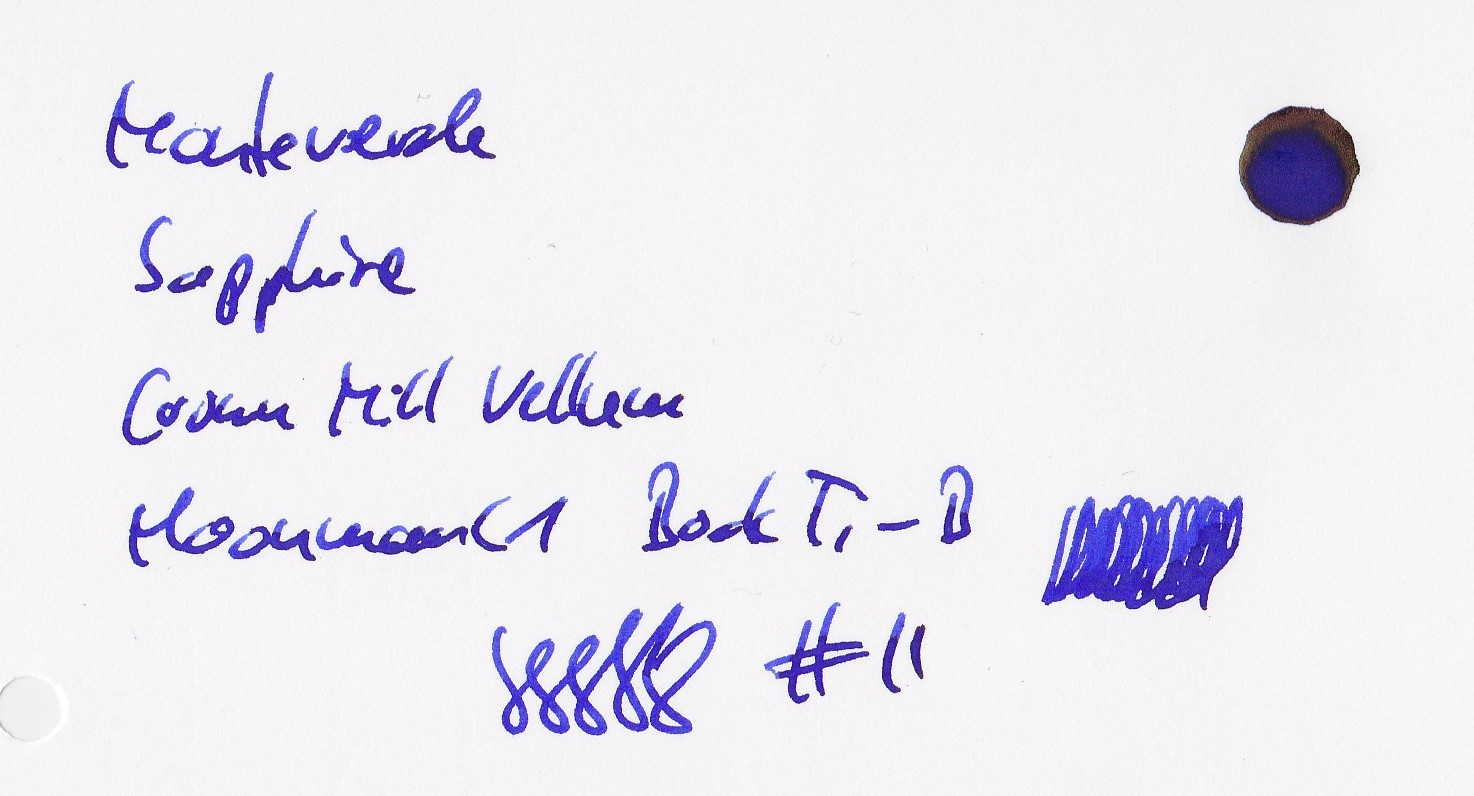 Monteverde
Sapphire
Crown Mill Vellum
Moonman C1 Bock Ti-B
#11